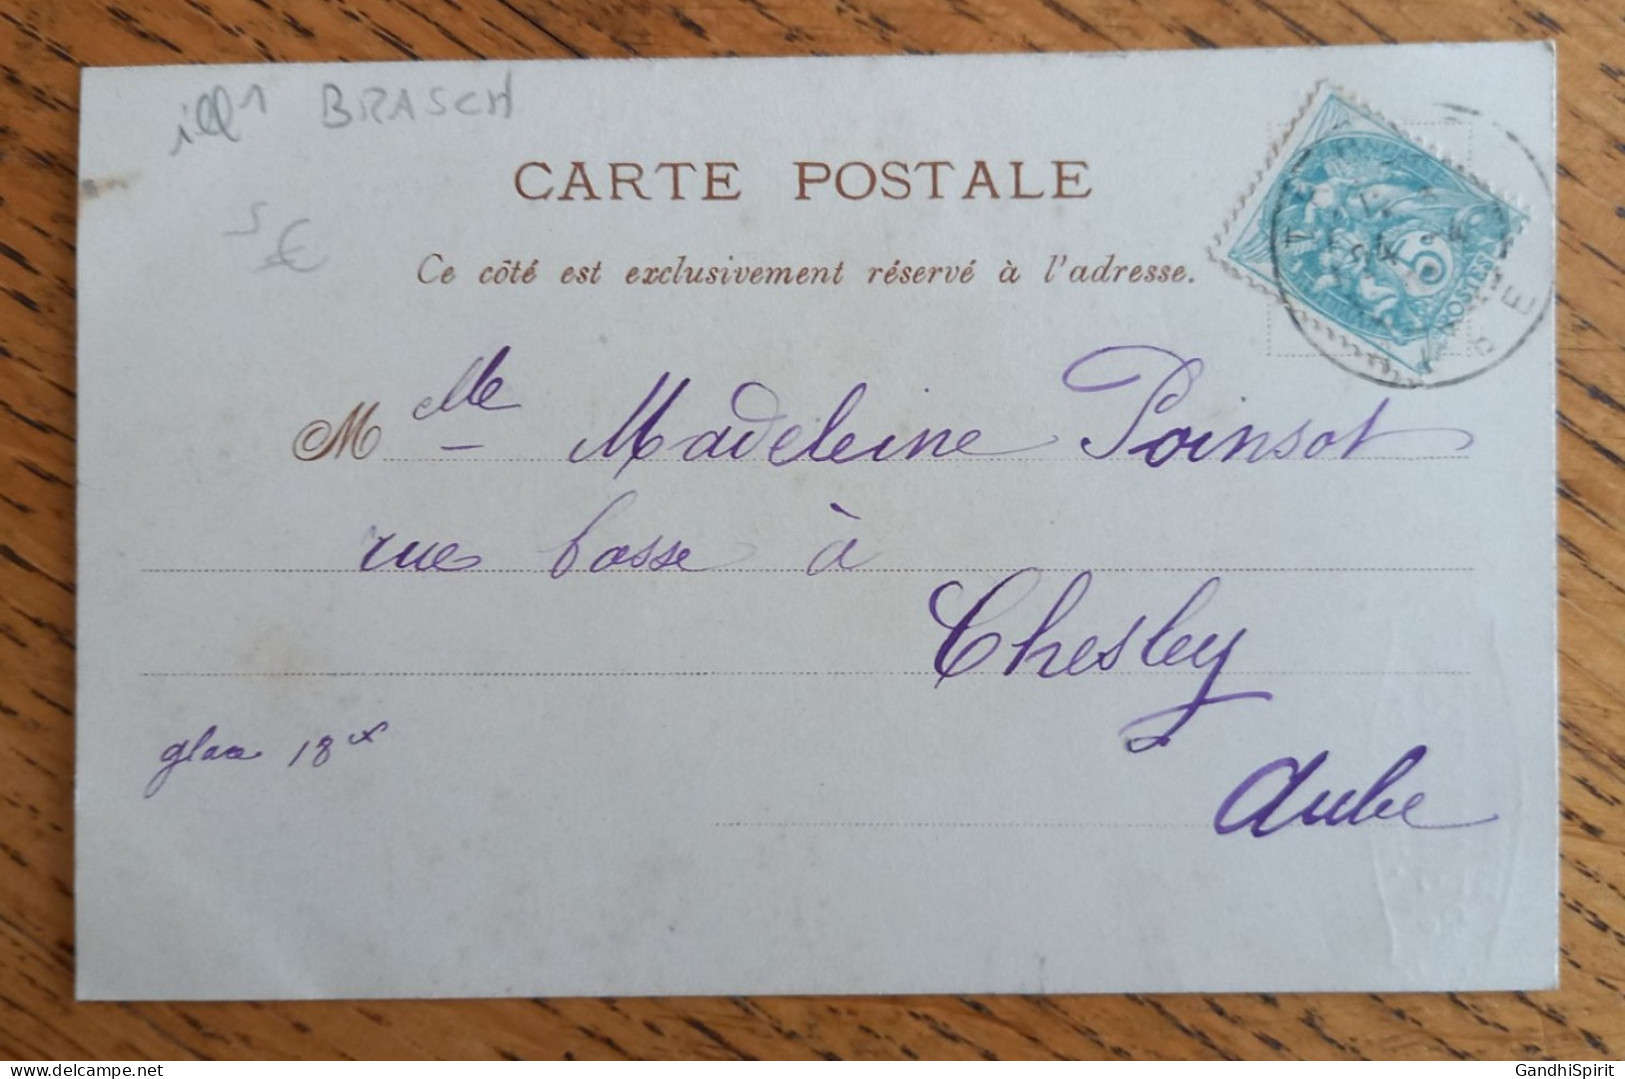 ill BRASCH
5 €
CARTE POSTALE
Ce côté est exclusivement réservé à l'adresse.
POSTES
5
M lle Madeleine Poinsot
rue basse à
Chesley
Aube
GandhiSpirit